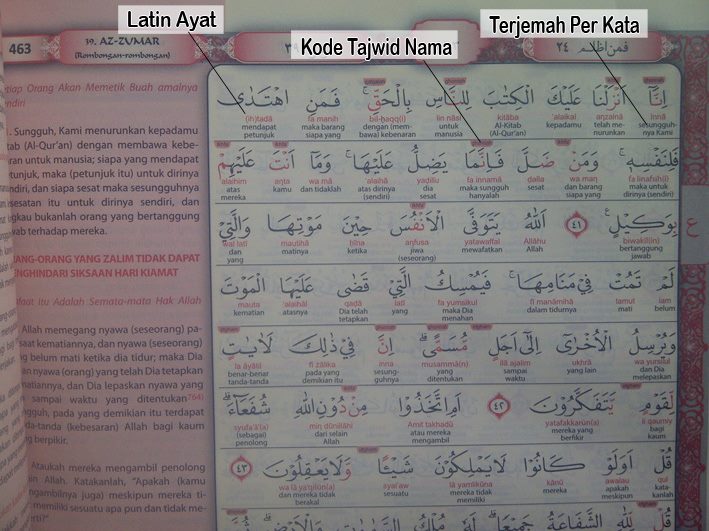 Latin Ayat
Kode Tajwid Nama
Terjemah Per Kata
463
39. AZ-ZUMAR
(Rombongan-rombongan)
فمن اظلم ٢٤
etiap Orang Akan Memetik Buah amalnya
endiri
. Sungguh, Kami menurunkan kepadamu
tab (Al-Qur'an) dengan membawa kebe-
ran untuk manusia; siapa yang mendapat
petunjuk, maka (petunjuk itu) untuk dirinya
endiri, dan siapa sesat maka sesungguhnya
esesatan itu untuk dirinya sendiri, dan
gkau bukanlah orang yang bertanggung
wab terhadap mereka.
ANG-ORANG YANG ZALIM TIDAK DAPAT
ENGHINDARI SIKSAAN HARI KIAMAT
nfaat itu Adalah Semata-mata Hak Allah
Allah memegang nyawa (seseorang) pa-
saat kematiannya, dan nyawa (seseorang)
g belum mati ketika dia tidur; maka Dia
an nyawa (orang) yang telah Dia tetapkan
matiannya, dan Dia lepaskan nyawa yang
sampai waktu yang ditentukan
gguh, pada yang demikian itu terdapat
da-tanda (kebesaran) Allah bagi kaum
g berpikir.
Ataukah mereka mengambil penolong
in Allah. Katakanlah, "Apakah (kamu
ngambilnya juga) meskipun mereka ti-
memiliki sesuatu apa pun dan tidak me-
erti?"
اِنَّآ اَنْزَلْنَا عَلَيْكَ الْكِتٰبَ لِلنَّاسِ بِالْحَقِّۚ فَمَنِ اهْتَدٰى
innā anzalnā 'alaikal kitāba lin nāsi bil-ḥaqq(i) fa manih (ih)tadā
sesungguh- telah me- kepadamu Al-Kitab untuk dengan (mem- maka barang mendapat
nya Kami nurunkan (Al-Qur'an) manusia bawa) kebenaran siapa yang petunjuk
فَلِنَفْسِهٖۚ وَمَنْ ضَلَّ فَاِنَّمَا يَضِلُّ عَلَيْهَاۚ وَمَآ اَنْتَ عَلَيْهِمْ
fa linafsih(i) wa man ḍalla fa innamā yaḍillu 'alaihā wa mā anta alaihim
maka untuk dan barang sesat maka sungguh dia atas dirinya dan tidaklah kamu atas
dirinya (sendiri) siapa yang hanyalah sesat (sendiri) mereka
بِوَكِيْلٍ ۝٤١ اَللّٰهُ يَتَوَفَّى الْاَنْفُسَ حِيْنَ مَوْتِهَا وَالَّتِيْ
biwakīl(in) Allāhu yatawaffal anfusa ḥīna mautihā wal latī
bertanggung Allah mewafatkan jiwa ketika matinya dan
jawab (seseorang) yang
لَمْ تَمُتْ فِيْ مَنَامِهَاۚ فَيُمْسِكُ الَّتِيْ قَضٰى عَلَيْهَا الْمَوْتَ
lam tamut fī manāmihā fa yumsikul latī qaḍā 'alaihal mauta
belum mati dalam tidurnya maka Dia yang Dia telah atasnya kematian
menahan tetapkan
وَيُرْسِلُ الْاُخْرٰىٓ اِلٰٓى اَجَلٍ مُّسَمًّىۗ اِنَّ فِيْ ذٰلِكَ لَاٰيٰتٍ
wa yursilul ukhrā ilā ajalim musammā(n) inna fī żālika la āyātil
dan Dia yang lain sampai yang sesung- pada yang benar-benar
melepaskan waktu ditentukan guhnya demikian itu tanda-tanda
لِّقَوْمٍ يَّتَفَكَّرُوْنَ ۝٤٢ اَمِ اتَّخَذُوْا مِنْ دُوْنِ اللّٰهِ شُفَعَاۤءَۗ
li qaumiy yatafakkarūn(a) Amit takhażū min dūnillāhi syufa'ā'(a)
bagi mereka yang atau mereka dari selain (sebagai)
kaum berfikir mengambil Allah penolong
قُلْ اَوَلَوْ كَانُوْا لَا يَمْلِكُوْنَ شَيْـًٔا وَّلَا يَعْقِلُوْنَ ۝٤٣
qul awalau kānū lā yamlikūna syai'aw wa lā ya'qilūn(a)
kata- apakah mereka mereka tidak sesuatu dan mereka tidak
kanlah meskipun adalah memiliki berakal
قُلْ لِّلّٰهِ الشَّفَاعَةُ جَمِيْعًاۗ لَهٗ مُلْكُ السَّمٰوٰتِ وَالْاَرْضِۗ